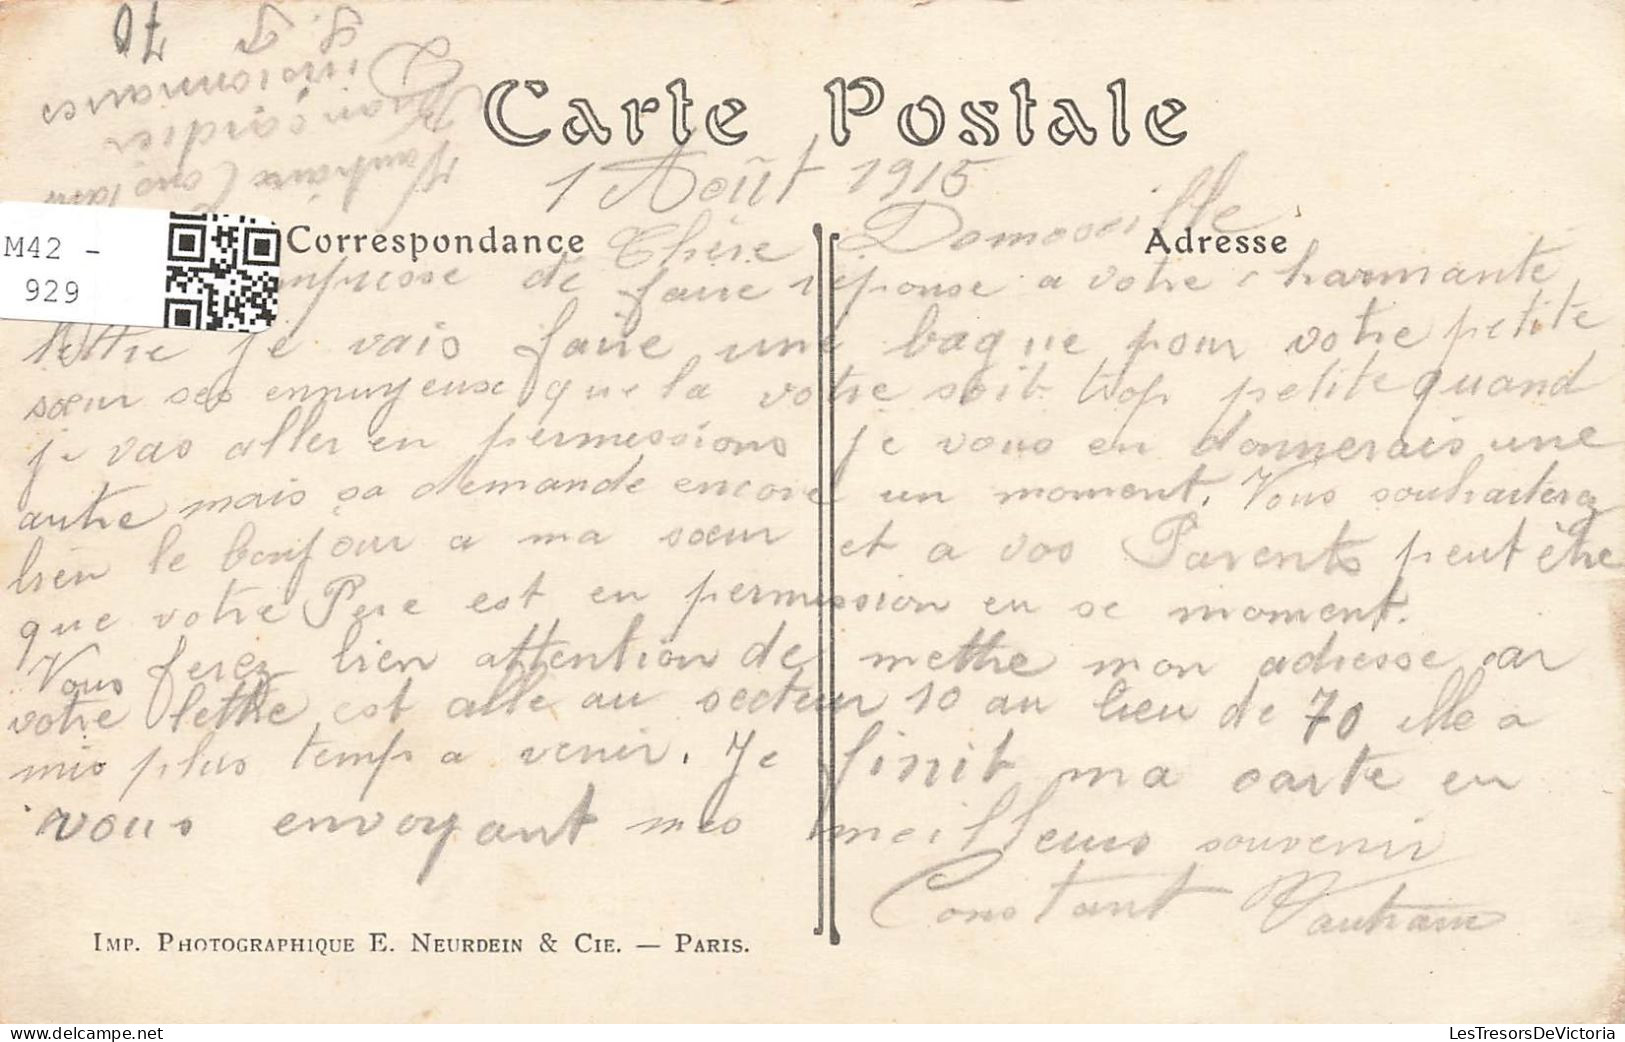 Carte Postale
1 Août 1915
Correspondance
Adresse
Chère
M42 -
929
empresse de faire réponse a votre charmante
lettre je vais faire une bague pour votre petite
sœur ses ennuyeuse que la votre soit trop petite quand
je vas aller en permissions je vous en donnerais une
autre mais sa demande encore un moment. Vous souhaiterez
bien le bonjour a ma sœur et a vos Parents peut être
que votre Pere est en permission en se moment.
Vous ferez bien attention de mettre mon adresse car
votre lettre est alle au secteur 10 au lieu de 70 elle a
mis plus temp a venir. Je finit ma carte en
vous envoyant mes meilleurs souvenir
Constant Vautrain
IMP. PHOTOGRAPHIQUE E. NEURDEIN & CIE. — PARIS.
70
LesTresorsDeVictoria